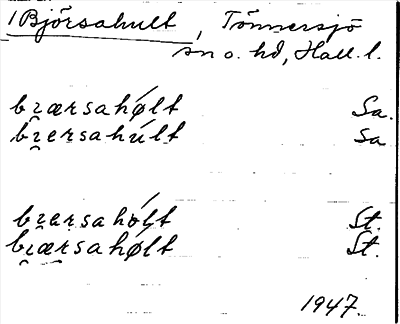 1 Björsahult, Tönnersjö
sn o. hd, Hall. l.
bi̯ærsahǿlt Sa.
bi̯ersahúlt Sa
bi̯ersahólt St.
bi̯ærsahǿlt St.
1947.